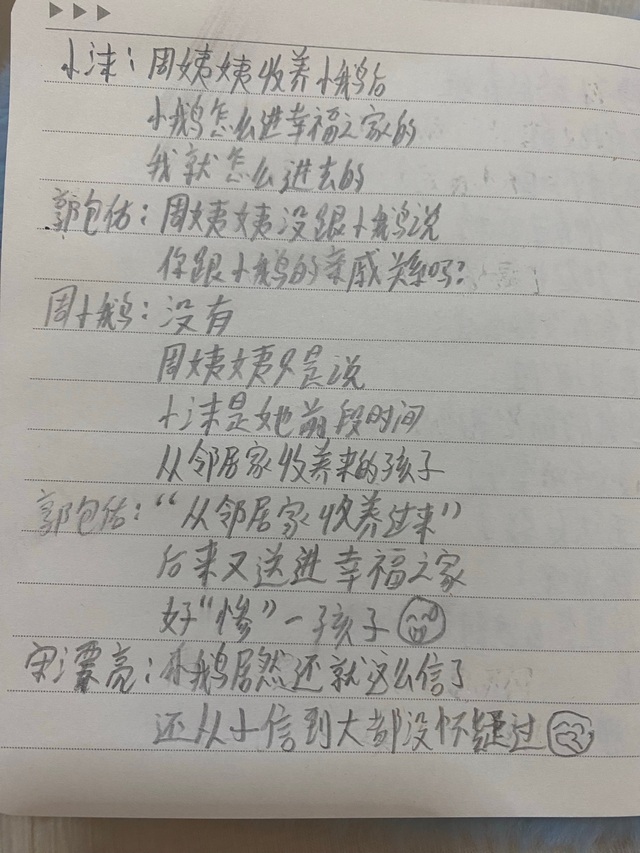 小沫：周姨姨收养小鹅后
小鹅怎么进幸福之家的
我就怎么进去的
郭包佑：周姨姨没跟小鹅说
你跟小鹅的亲戚关系吗？
周小鹅：没有
周姨姨只是说
小沫是她前段时间
从邻居家收养来的孩子
郭包佑：“从邻居家收养过来”
后来又送进幸福之家
好“惨”一孩子
宋漂亮：小鹅居然还就这么信了
还从小信到大都没怀疑过